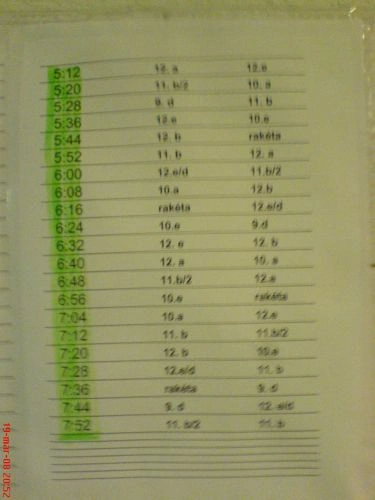 5:12 12. a 12.e
5:20 11. b/2 10. a
5:28 9. d 11. b
5:36 12.e 10.e
5:44 12. b rakéta
5:52 11. b 12. a
6:00 12.e/d 11.b/2
6:08 10.a 12.b
6:16 rakéta 12.e/d
6:24 10.e 9.d
6:32 12. e 12. b
6:40 12. a 10. a
6:48 11.b/2 12.a
6:56 10.e rakéta
7:04 10.a 12.e
7:12 11. b 11.b/2
7:20 12. b 10.e
7:28 12.e/d 11. b
7:36 rakéta 9. d
7:44 9. d 12. e/d
7:52 11. b/2 11. b
19-mar-08 20:52